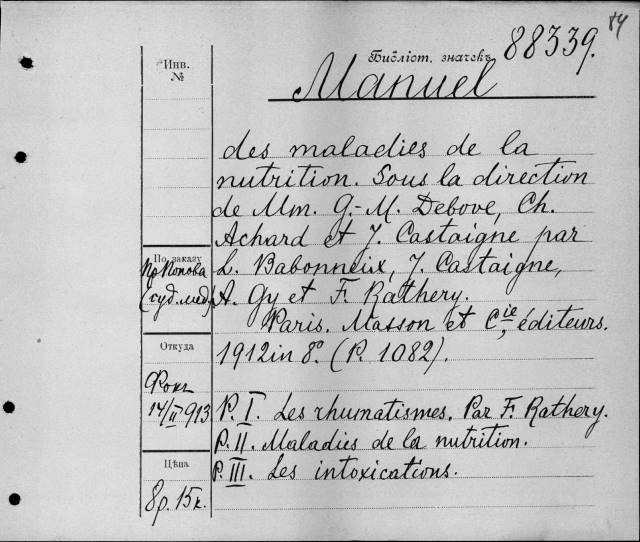 84
Библіот. значекъ 88339.
Инв.
№
Manuel
des maladies de la
nutrition. Sous la direction
de Mm. G.-M. Debove, Ch.
Achard et J. Castaigne par
L. Babonneix, J. Castaigne,
A. Gy et F. Rathery.
Paris. Masson et Cie, éditeurs.
1912 in 8o. (P. 1082).
P. I. Les rhumatismes. Par F. Rathery.
P. II. Maladies de la nutrition.
P. III. Les intoxications.
По заказу
Пр Попова
(суд. мед.)
Откуда
Фокъ
14/II 913
Цѣна
8р. 15к.